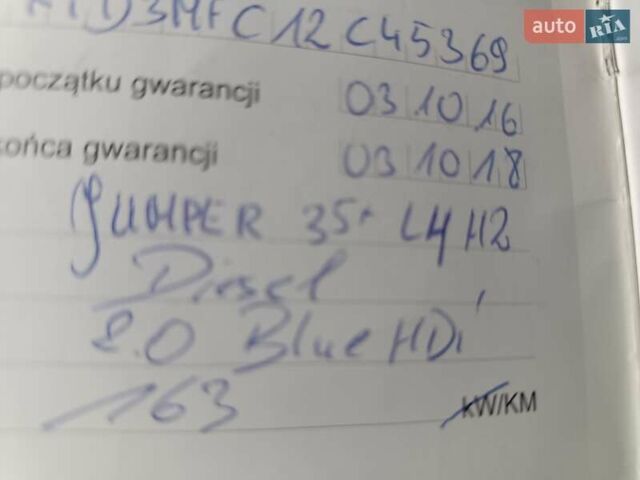 auto RIA .com
YTD3MFC12C45369
początku gwarancji 03 10 16
końca gwarancji 03 10 18
JUMPER 35+ L4H2
Diesel
2.0 Blue HDi
163 kW/KM